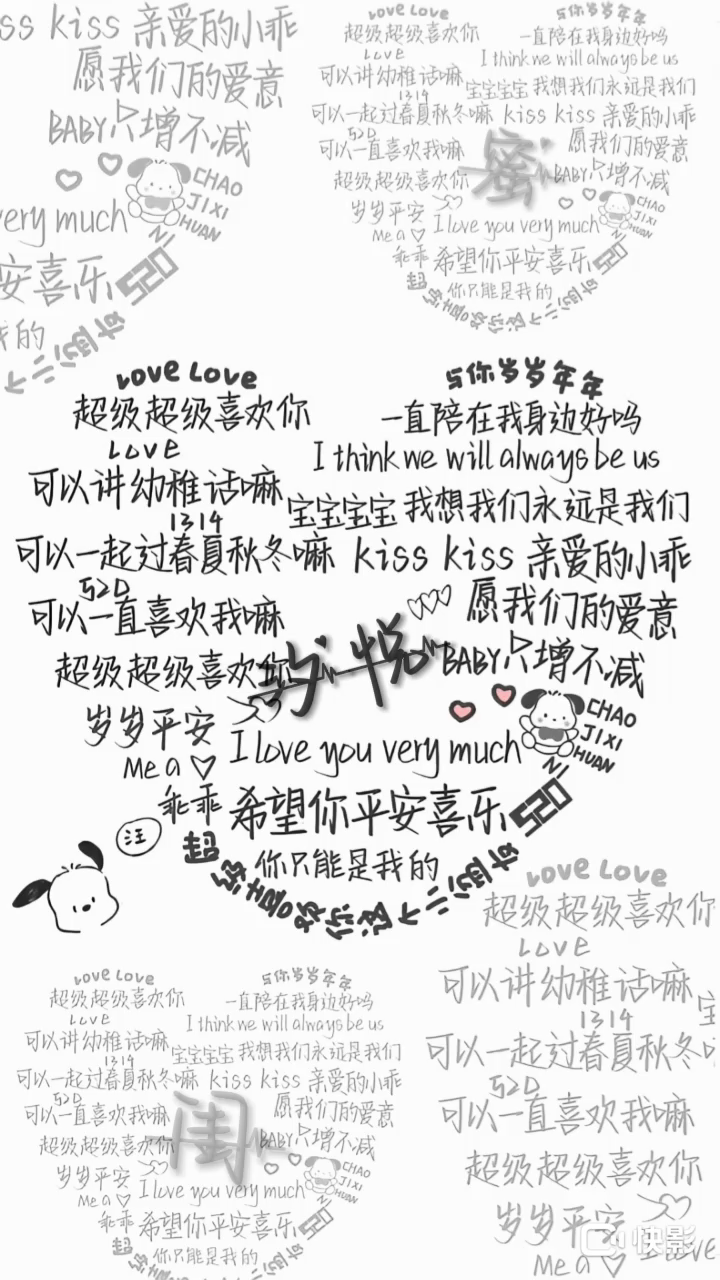 ss kiss 亲爱的小乖
愿我们的爱意
BABY只增不减
CHAO
JI XI
HUAN
NI
very much
安喜乐 520
的
Love Love
与你岁岁年年
超级超级喜欢你
一直陪在我身边好吗
Love
I think we will always be us
可以讲幼稚话嘛
宝宝宝宝 我想我们永远是我们
1314
可以一起过春夏秋冬嘛 kiss kiss 亲爱的小乖
520
可以一直喜欢我嘛
愿我们的爱意
蜜
BABY只增不减
超级超级喜欢你
CHAO
JI XI
HUAN
NI
岁岁平安
I love you very much
Me a
乖乖 希望你平安喜乐 520
你只能是我的
Love Love
与你岁岁年年
超级超级喜欢你
一直陪在我身边好吗
LOVE
I think we will always be us
可以讲幼稚话嘛
宝宝宝宝 我想我们永远是我们
1314
可以一起过春夏秋冬嘛 kiss kiss 亲爱的小乖
520
可以一直喜欢我嘛
愿我们的爱意
悦
BABY只增不减
超级超级喜欢你
CHAO
JI XI
HUAN
NI
岁岁平安
I love you very much
Me a
乖乖 希望你平安喜乐 520
汪
你只能是我的
Love Love
与你岁岁年年
超级超级喜欢你
一直陪在我身边好吗
LOVE
I think we will always be us
可以讲幼稚话嘛
宝宝宝宝 我想我们永远是我们
1314
可以一起过春夏秋冬嘛 kiss kiss 亲爱的小乖
520
可以一直喜欢我嘛
愿我们的爱意
闺
BABY只增不减
超级超级喜欢你
CHAO
JI XI
HUAN
NI
岁岁平安
I love you very much
Me a
乖乖 希望你平安喜乐 520
你只能是我的
Love Love
超级超级喜欢你
LOVE
可以讲幼稚话嘛
宝
1314
可以一起过春夏秋冬
520
可以一直喜欢我嘛
超级超级喜欢你
岁岁平安
I love
Me a
快影